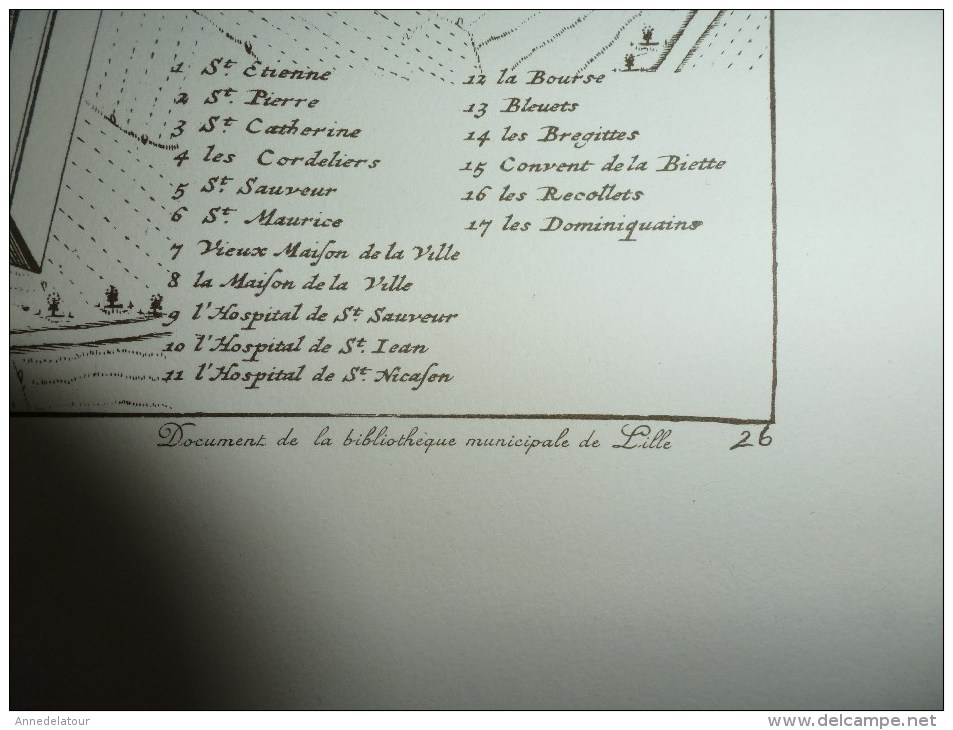 1 St. Etienne
2 St. Pierre
3 St. Catherine
4 les Cordeliers
5 St. Sauveur
6 St. Maurice
7 Vieux Maiſon de la Ville
8 la Maiſon de la Ville
9 l'Hospital de St. Sauveur
10 l'Hospital de St. Iean
11 l'Hospital de St. Nicaſen
12 la Bourse
13 Bleuets
14 les Bregittes
15 Convent de la Biette
16 les Recollets
17 les Dominiquains
Document de la bibliothèque municipale de Lille 26
Annedelatour
www.delcampe.net